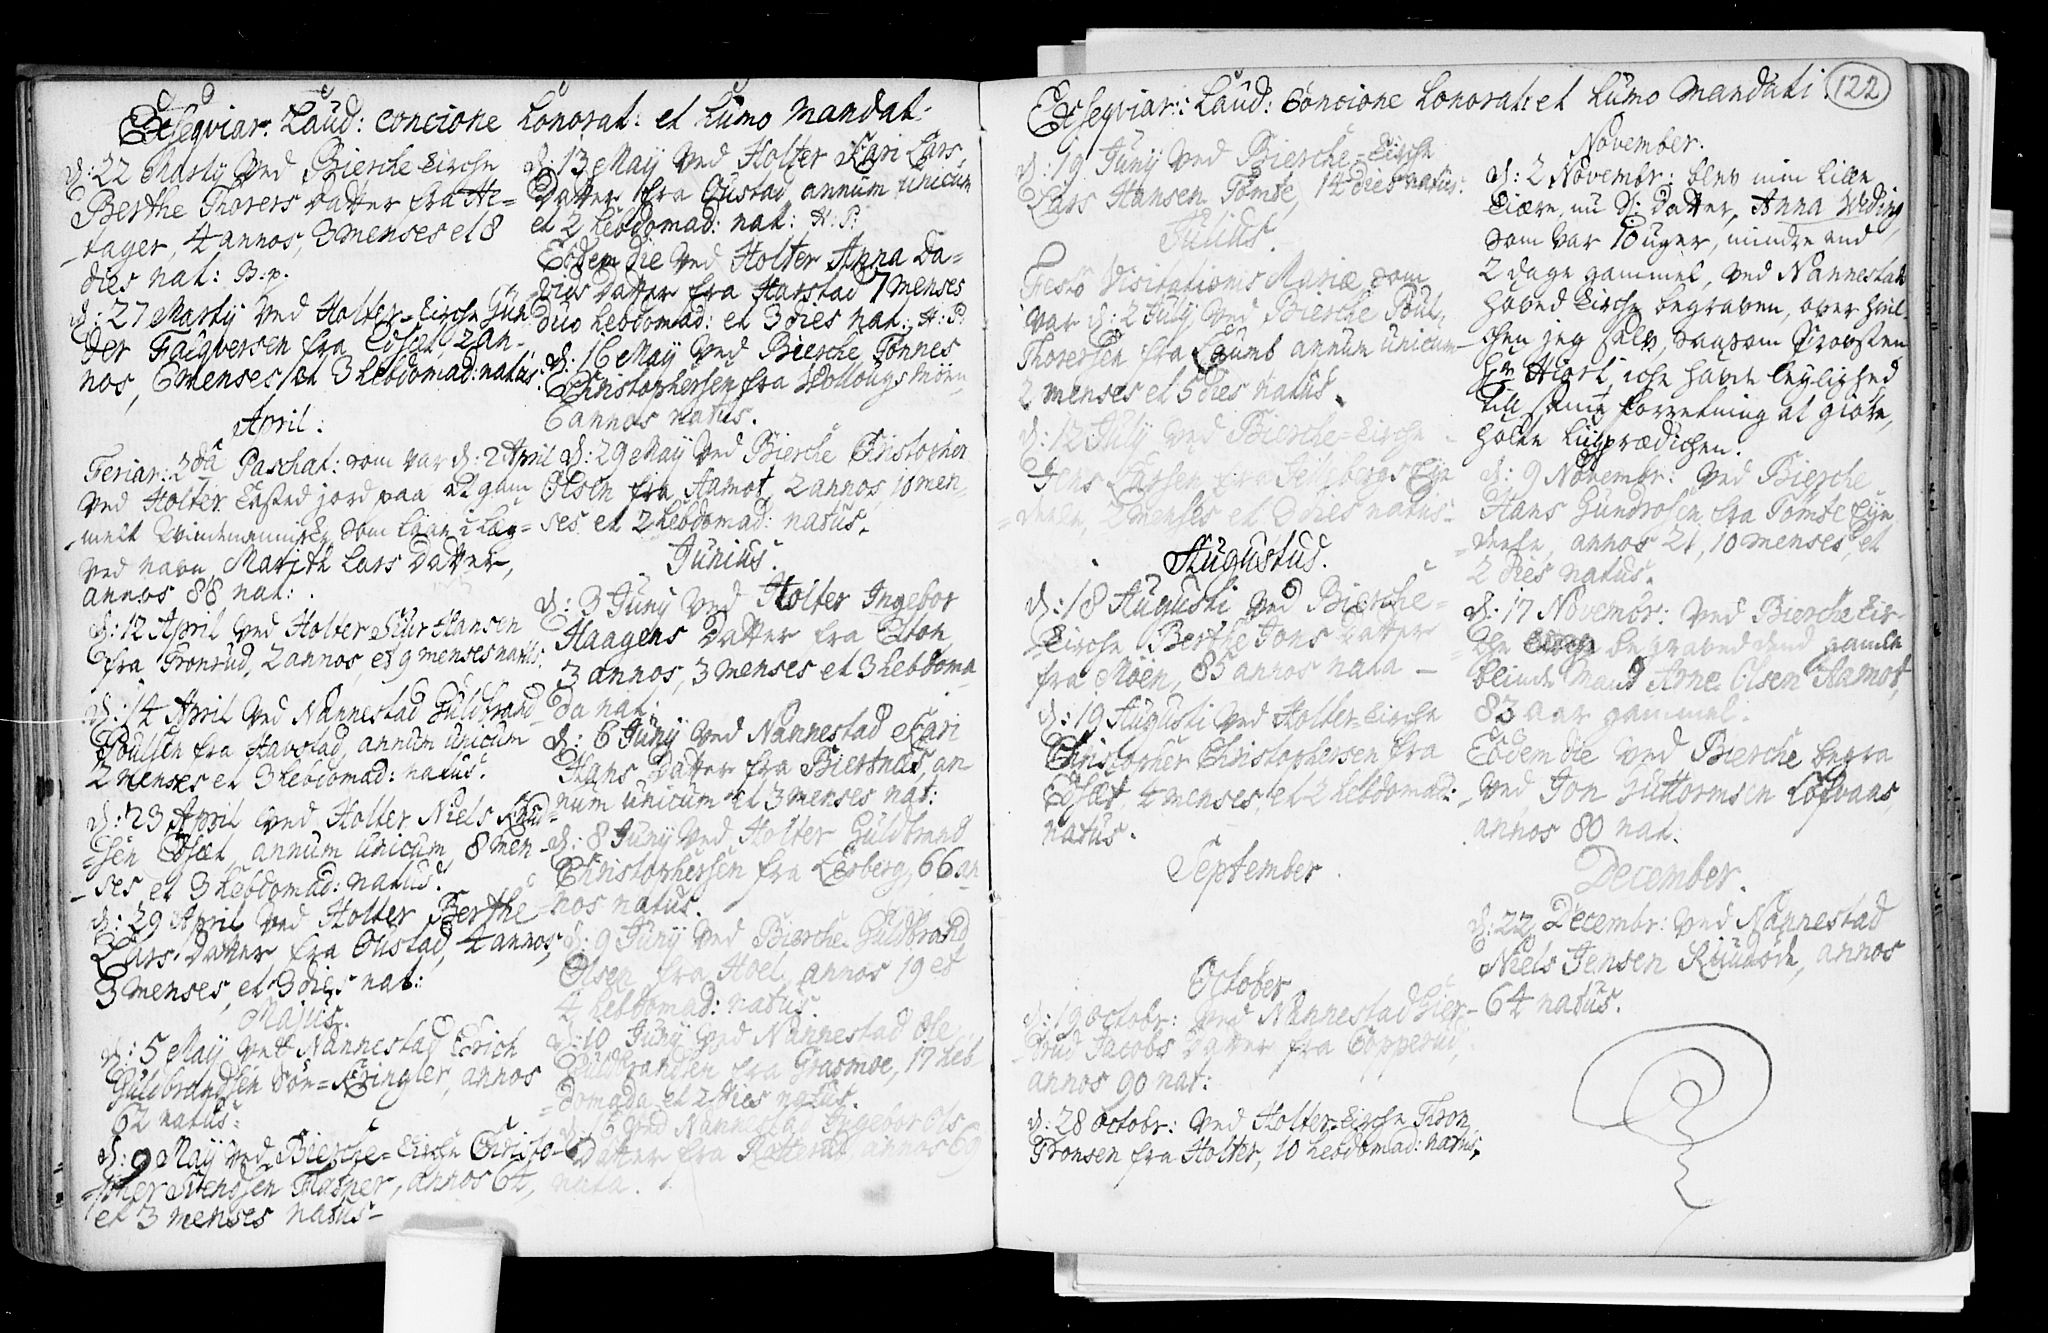 Exseqviar: Laud: concione honorat: et humo mandat:
d: 22 Martij ved Bierche kirche
Berthe Thorers Datter fra Al-
tager, 4 annos, 3 menses et 8
dies nat: B: p.
d: 27 Martij ved Holter-kirche Gun
der fra 2 an-
nos, 6 menses et 3 hebdomad: natus.
April:
Feriar: 2da Paschat: som var d: 2 April
ved Holter kasted jord paa et gam
melt Qvindemenniske som laae i Læg-
ved navn Marithe Lars Datter,
annos 88 nat:
d: 12 April ved Holter Siur Hansen
fra Tronrud, 2 annos, et 9 menses natus.
d: 14 April ved Nannestad Guldbrand
Poulsen fra Havstad, annum unicum
2 menses et 3 hebdomad: natus.
d: 23 April ved Holter Niels Knud-
sen annum unicum, 8 men-
ses, et 3 hebdomad: natus.
d: 29 April ved Holter Berthe
Lars Datter fra Oustad, 4 annos,
3 menses, et 3 dies nat:
Majus.
d: 5 Maij ved Nannestad Erich
Guldbrandsen Sør-Kringler, annos
62 natus:
d: 9 Maij ved Bierche-kirche Christo-
pher annos 64,
et 3 menses natus-
d: 13 Maij ved Holter Kari Lars
Datter fra Oustad annum unicum
et 2 hebdomad: nat: H: P:
Eodem die ved Holter Anna Da-
vids Datter fra Harstad 7 menses
duo hebdomad: et 3 dies nat: H: P:
d: 16 Maij ved Bierche Tønnes
Christophersen fra
6 annos natus.
d: 29 Maij ved Bierche Christopher
Olsen fra Aamot, 2 annos, 10 men-
ses et 2 hebdomad: natus.
Junius.
d: 3 Junij ved Holter Ingebor
Haagens Datter fra
3 annos, 3 menses et 3 hebdoma-
da nat:
d: 6 Junij ved Nannestad Kari
Hans Datter fra Biertnes, an
num unicum et 3 menses nat:
d: 8 Junij ved Holter Guldbrand
Christophersen fra Lerberg, 66 an-
nos natus.
d: 9 Junij ved Bierche Guldbrand
Olsen fra Hoel, annos 19 et
4 hebdomad: natus.
d: 10 Junij ved Nannestad Ole
Guldbrandsen fra Grasmoe, 17 heb-
domada et 2 dies natus.
d: 16 ved Nannestad Ingebor Ols
Datter fra Ratterud, annos 60
nata.
Exseqviar: Laud: Concione honorat: et humo mandati
122
d: 19 Junij ved Bierche-kirche
Lars Hansen Tømte, 14 dies natus.
Julius.
Festo Visitationis Mariæ som
var d: 2 July ved Bierche Poul
Thorersen fra annum unicum
2 menses et 5 dies natus.
d: 12 July ved Bierche-kirche
Jens Larsen fra Eje
delen, 2 menses et 3 dies natus.
Augustus.
d: 18 Augusti ved Bierche-
kirche Berthe Jons Datter
fra Moen, 85 annos nata -
d: 19 Augusti ved Holter-kirche
Christopher Christophersen fra
4 menses, et 2 hebdomad:
natus.
September.
October
d: 19 octobr: ved Nannestad Gier-
trud Jacobs Datter fra Copperud,
annos 90 nat:
d: 28 octobr: ved Holter-kirche Thron
Tronsen fra Holter, 10 hebdomad: natus.
November.
d: 2 Novembr: blev min lille
kiære nu Sl: Datter, Anna Weding,
som var 10 uger, mindre end
2 dage gammel, ved Nannestad
hoved kirche begraven, over hvil-
chen jeg selv, saasom Provsten
Hr Hiort, iche havde leylighed
till samme forretning at giøre,
holte liigprædichen.
d: 9 Novembr: ved Bierche
Hans Gundrosen fra Tømte Eje
delen, annos 21, 10 menses, et
2 dies natus.
d: 17 Novembr: ved Bierche kir-
che begraved dend gamle
blinde Mand Arne Olsen Aamot,
83 aar gammel.
Eodem die ved Bierche begra
ved Jon Guttormsen
annos 80 nat:
December.
d: 22 Decembr: ved Nannestad
Niels Jensen annos
64 natus.